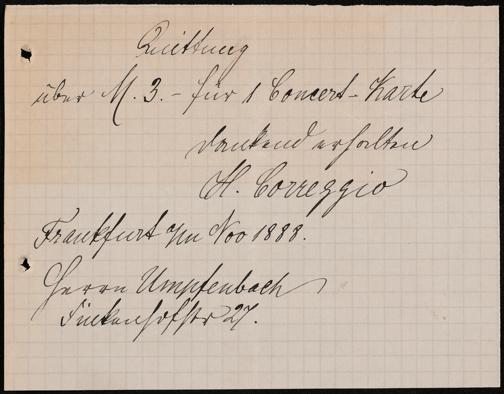 Quittung
über M. 3.- für 1 Concert-Karte
dankend erhalten
H. Correggio
Frankfurt a/m Nov 1888.
Herrn Umpfenbach
27.